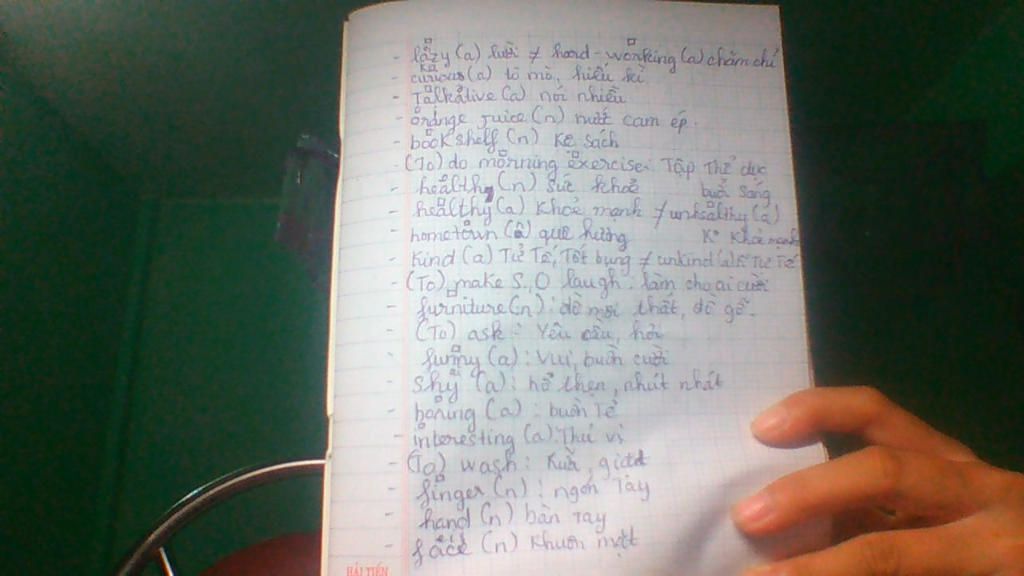 - lazy (a) lười ≠ hard-working (a) chăm chỉ
- curious (a) tò mò, hiếu kì
- Talkative (a) nói nhiều
- orange juice (n) nước cam ép.
- bookshelf (n) kệ sách
- (To) do morning exercise: Tập Thể dục buổi sáng
- health (n) sức khoẻ
- healthy (a) Khoẻ mạnh ≠ unhealthy (a) K° Khoẻ mạnh
- hometown (n) quê hương
- Kind (a) Tử Tế, Tốt bụng ≠ unkind (a) K° Tử Tế
- (To) make S.O laugh: làm cho ai cười
- furniture (n): đồ nội thất, đồ gỗ.
(To) ask: Yêu cầu, hỏi
- funny (a): Vui, buồn cười
- shy (a): hổ thẹn, nhút nhát
- boring (a): buồn Tẻ
- interesting (a): Thú vị
- (To) wash: Rửa, giặt
- finger (n): ngón Tay
- hand (n) bàn Tay
- face (n) Khuôn mặt
HẢI TIẾN